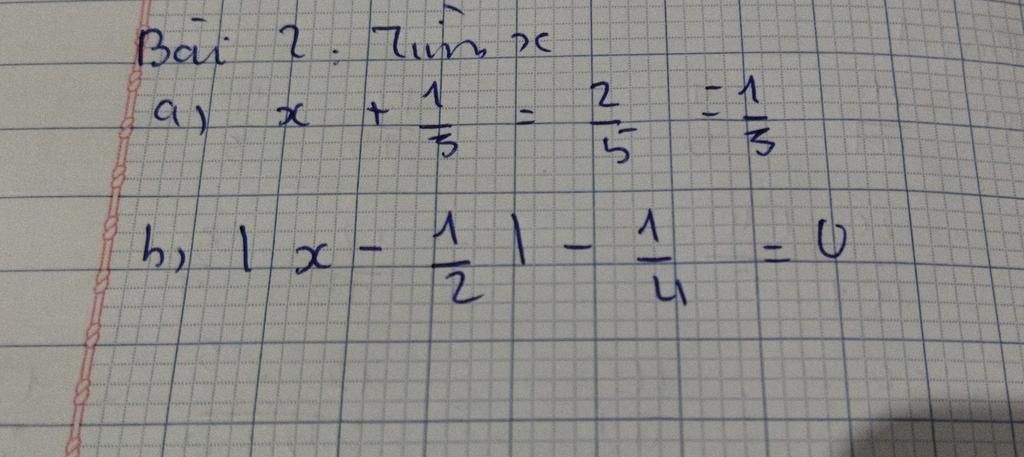 Bài 2: Tìm x
a) x + 1/3 = 2/5 = 1/3
b) | x - 1/2 | - 1/4 = 0